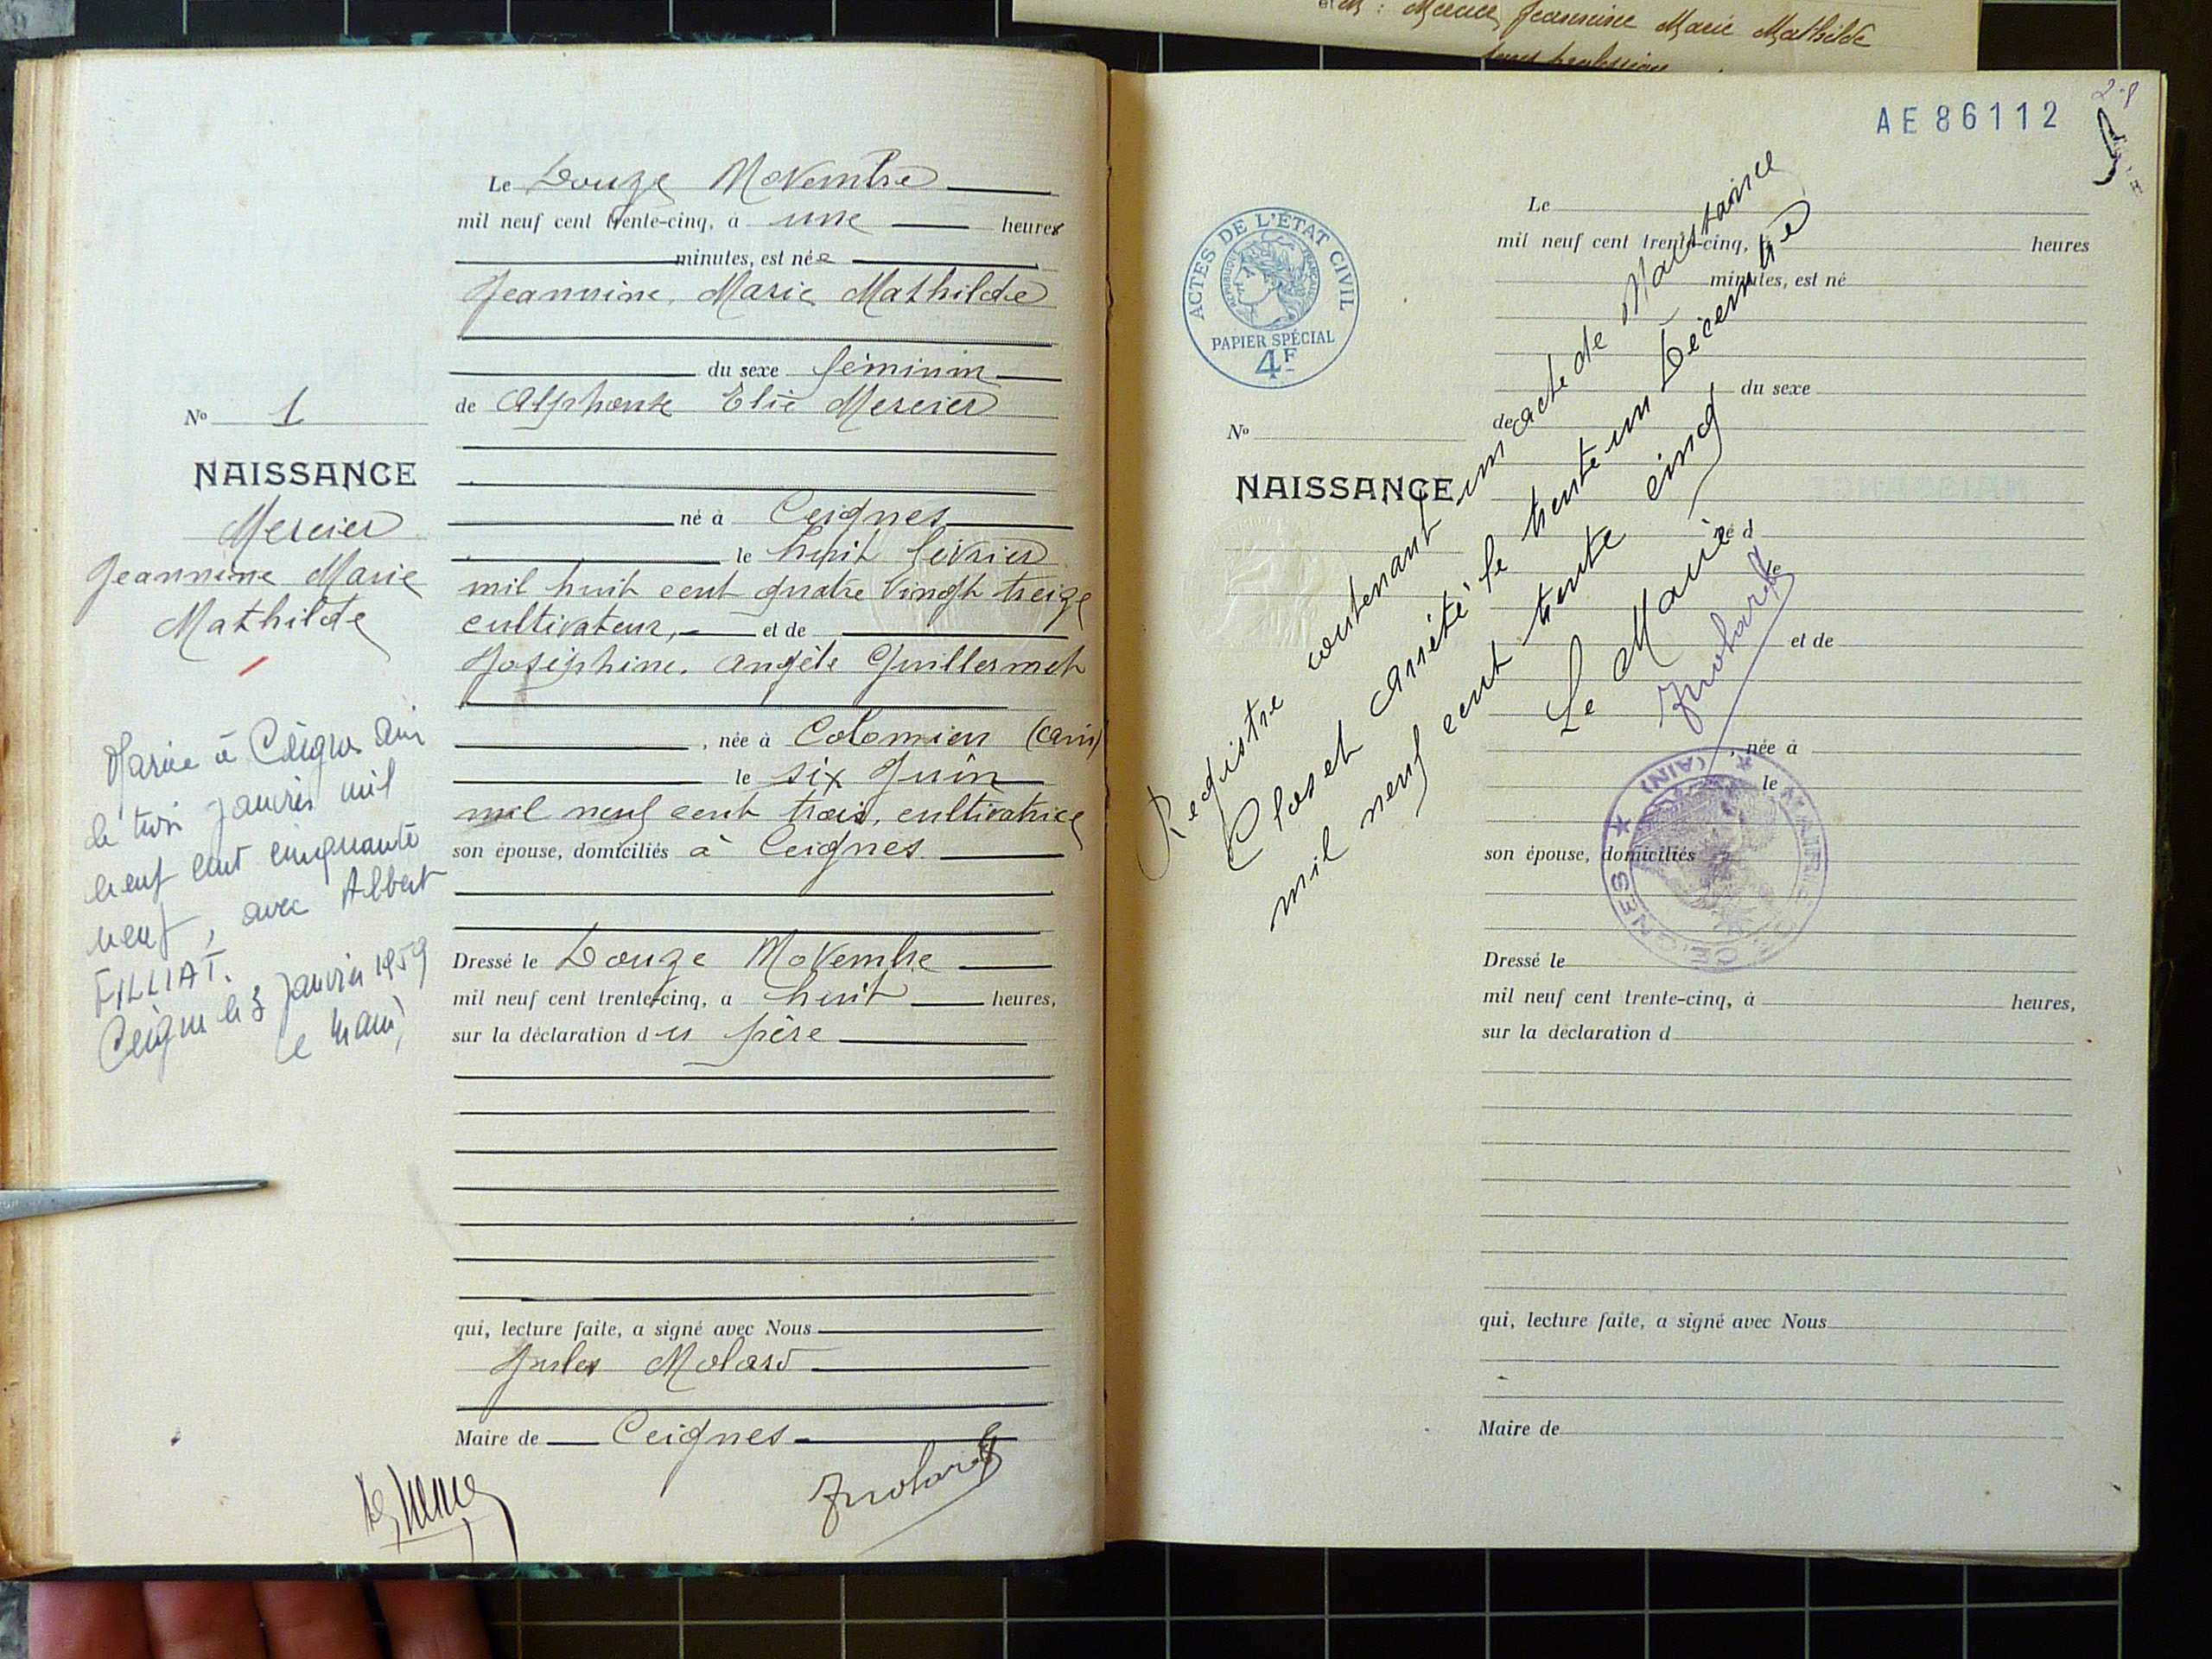 et M : Mercier Jeannine Marie Mathilde
sans profession
Le Douze Novembre
mil neuf cent trente-cinq, à une heures
minutes, est née
Jeannine, Marie Mathilde
du sexe féminin
de Alphonse Elie Mercier
né à Ceignes
le huit février
mil huit cent quatre vingt treize
cultivateur, et de
Joséphine, Angèle Guillermet
, née à Colomieu (Ain)
le six Juin
mil neuf cent trois, cultivatrice
son épouse, domiciliés à Ceignes
Dressé le Douze Novembre
mil neuf cent trente-cinq, à huit heures,
sur la déclaration du père
qui, lecture faite, a signé avec Nous
Jules Molard
Maire de Ceignes
Jmolard
No 1
NAISSANCE
Mercier
Jeannine Marie
Mathilde
Mariée à Ceignes Ain
le trois janvier mil
neuf cent cinquante
neuf, avec Albert
FILLIAT.
Ceignes le 3 janvier 1959
le Maire,
AE86112
ACTES DE L'ÉTAT CIVIL
RÉPUBLIQUE FRANÇAISE
PAPIER SPÉCIAL
4F
No
NAISSANCE
Le
mil neuf cent trente-cinq, à heures
minutes, est né
du sexe
de
né à
le
et de
, née à
le
son épouse, domiciliés
Dressé le
mil neuf cent trente-cinq, à heures,
sur la déclaration d
qui, lecture faite, a signé avec Nous
Maire de
Registre contenant un acte de Naissance
Clos et arrêté le trente un Décembre
mil neuf cent trente cinq
Le Maire
Jmolard
MAIRIE DE CEIGNES ★ (AIN) ★